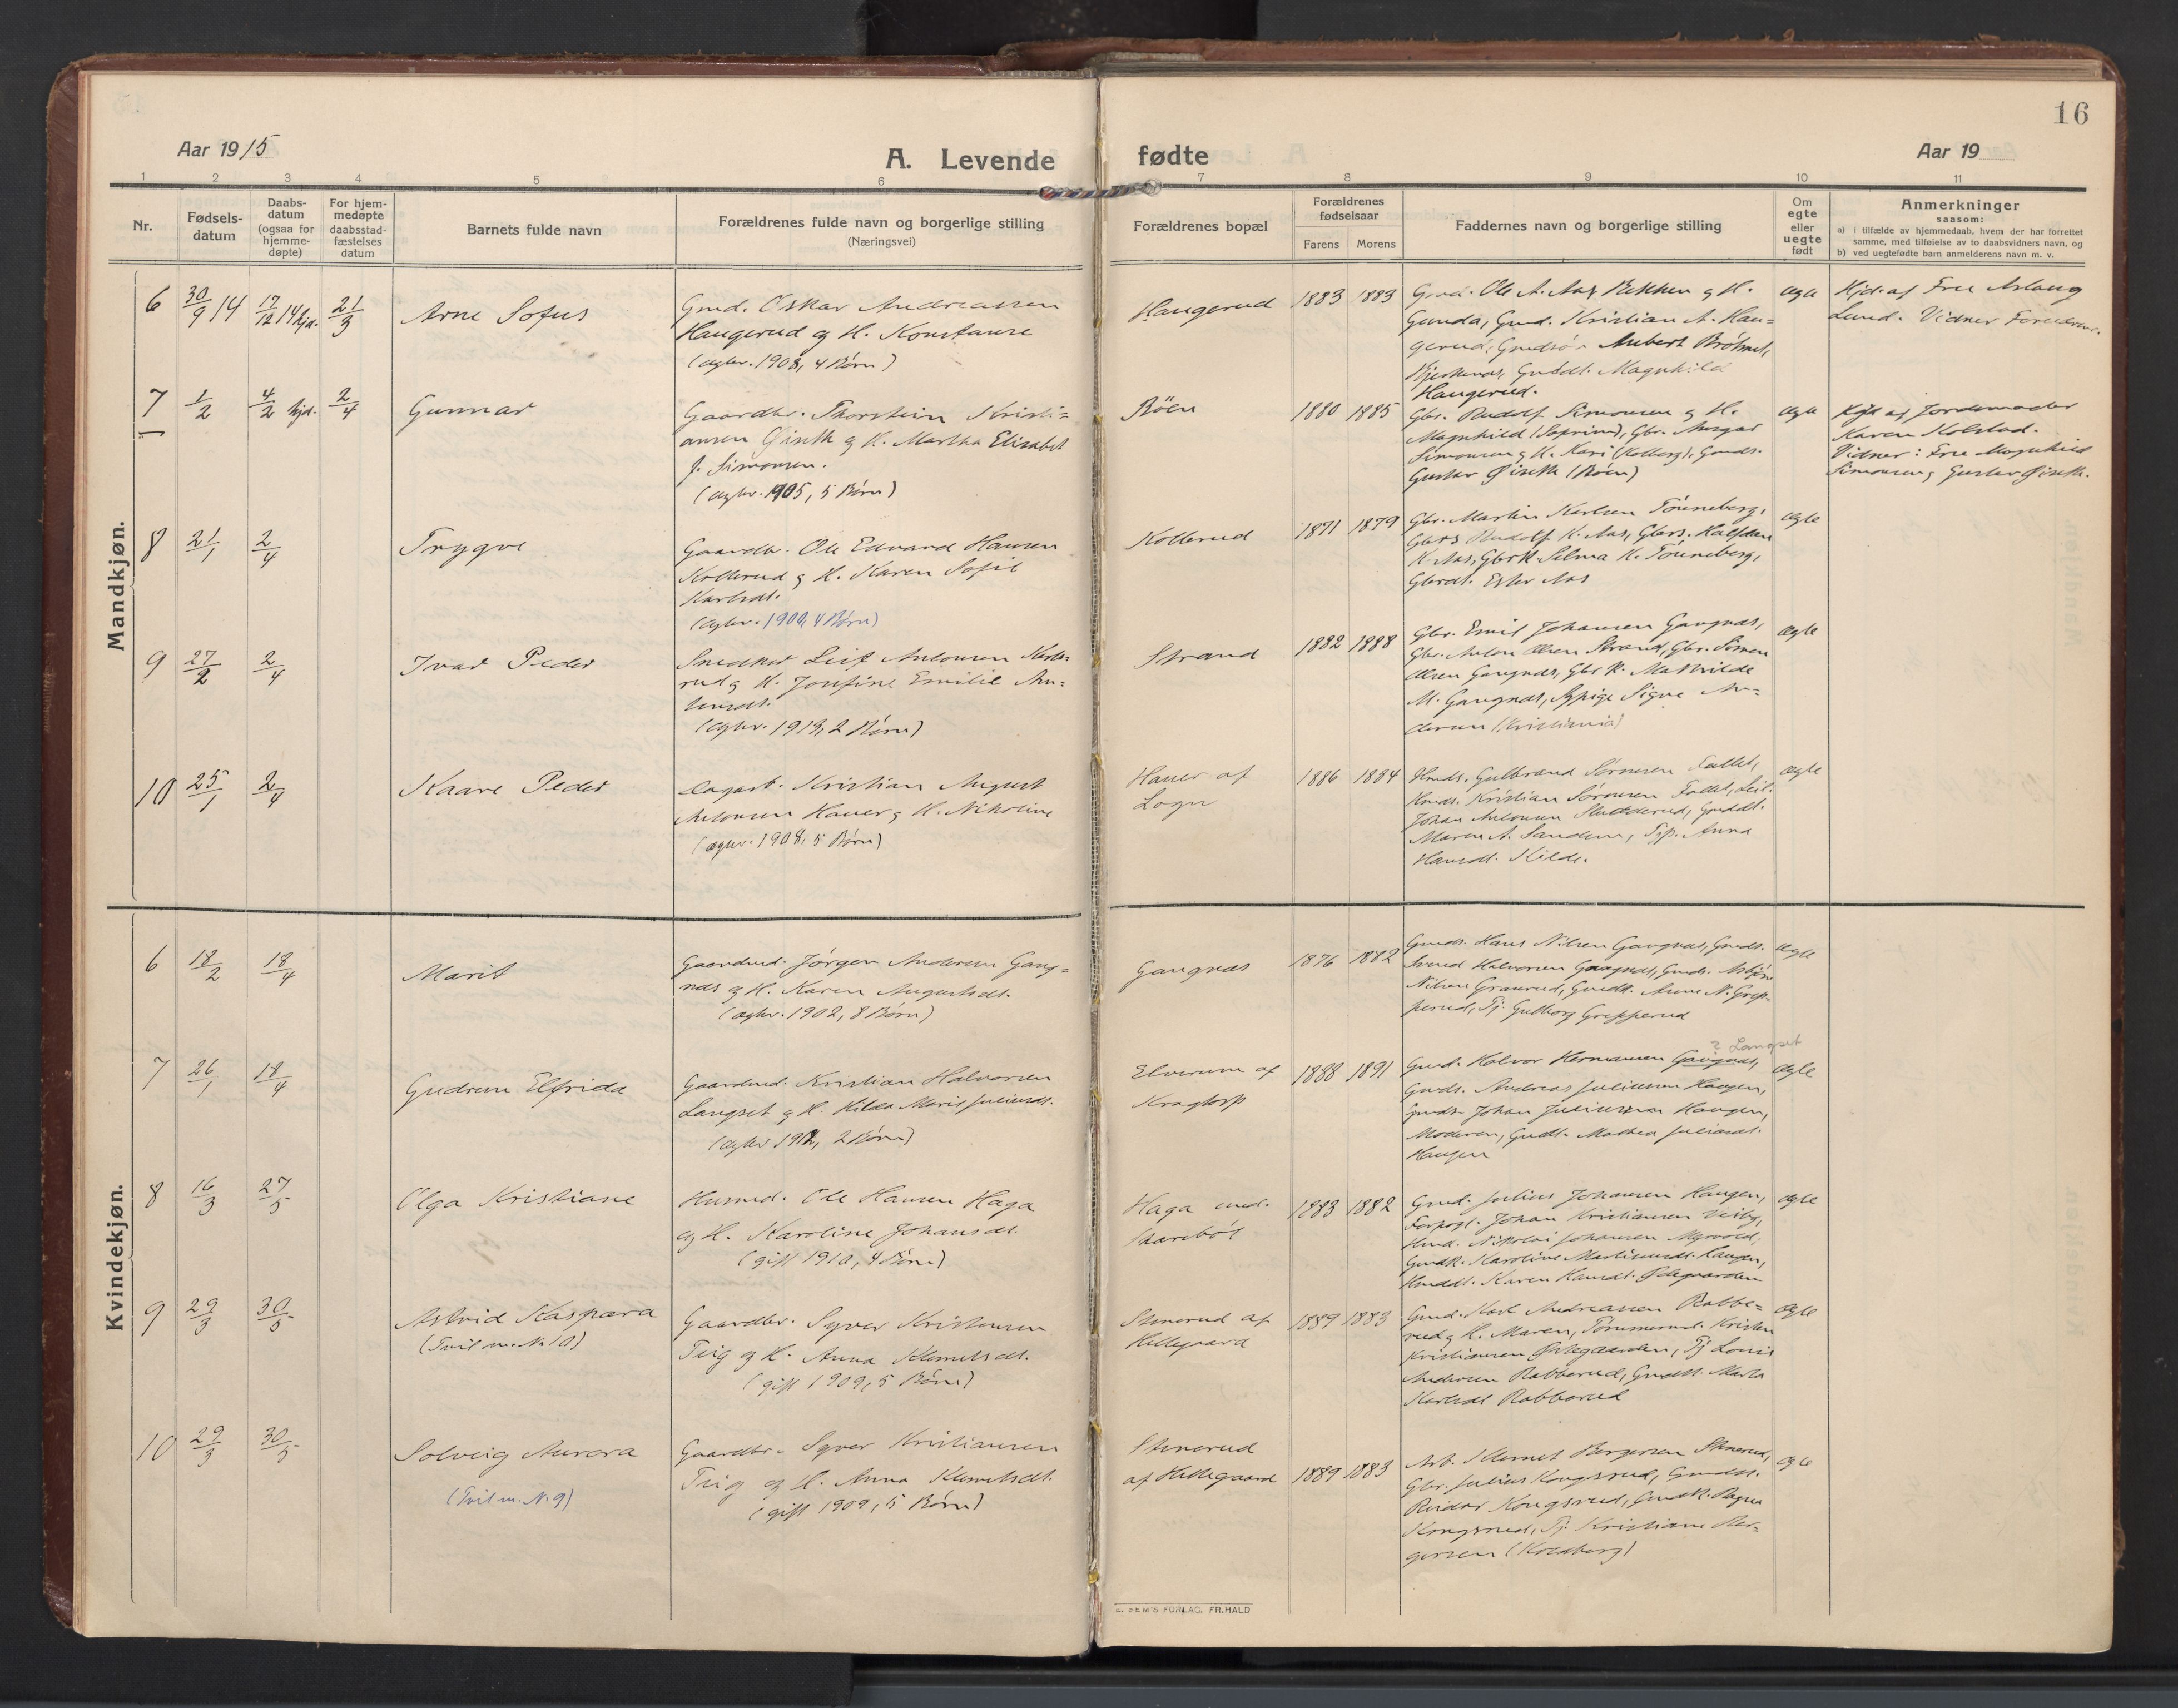 16
Aar 1915
A. Levende fødte
Aar 19
1 2 3 4 5 6 7 8 9 10 11
Nr.
Fødsels-
datum
Daabs-
datum
(ogsaa for
hjemme-
døpte)
For hjem-
medøpte
daabsstad-
fæstelses
datum
Barnets fulde navn
Forældrenes fulde navn og borgerlige stilling
(Næringsvei)
Forældrenes bopæl
Forældrenes
fødselsaar
Farens Morens
Faddernes navn og borgerlige stilling
Om
egte
eller
uegte
født
Anmerkninger
saasom:
a) i tilfælde av hjemmedaab, hvem der har forrettet
samme, med tilføielse av to daabsvidners navn, og
b) ved uegtefødte barn anmelderens navn m. v.
Mandkjøn.
6
30/9 14
17/12 14 hjd.
21/3
Arne Sofus
Gmd. Oskar Andreassen
Haugerud og H. Konstanse
(ægtev. 1908, 4 Børn)
Haugerud
1883 1883
Gmd. Ole A. Aas, Bakken og H.
Gunda, Gmd. Kristian A. Hau=
gerud,
Magnhild
Haugerud.
ægte
Hjd. af Frue Aslaug
Lund. Vidner Forældrene.
7
1/2
4/2 hjd.
2/4
Gunnar
Gaardbr. Thorstein Kristi=
ansen Giseth og H. Martha Elisabet
J. Simonsen.
(ægtev. 1905, 5 Børn)
Böen
1880 1885
Gbr. Rudolf Simonsen og H.
Magnhild Gbr. Ansgar
Simonsen og H. Kari (Kolberg), Gmds.
Gustav Giseth (Böen)
ægte
Hjd af Jordemoder
Karen Kolstad.
Vidner: Frue Magnhild
Simonsen og Gustav Giseth.
8
21/1
2/4
Trygve
Gaardbr. Ole Edvard Hansen
Kollerud og H. Karen Sofie
Karlsdt.
(ægtev. 1900, 4 Børn)
Kollerud
1871 1879
Gbr. Martin Karlsen Tönneberg,
Gbrs Rudolf K. Aas, Gbrs. Halfdan
K. Aas, Gbrk. Selma K. Tönneberg,
Gbrdt. Ester Aas
ægte
9
27/2
2/4
Ivar Peder
Snedker Leif Antonsen
rud og H. Josefine Emilie An=
tonsdt.
(ægtev. 1913, 2 Børn)
Strand
1882 1888
Gbr. Emil Johansen Gangnæs,
Gbr. Anton Olsen Strand, Gbr. Simen
Olsen Gangnæs, Gbr k. Mathilde
M. Gangnæs, Sypige Signe An=
dersen (Kristiania)
ægte
10
25/1
2/4
Kaare Peder
Kristian August
Antonsen Hauer og H. Nikoline
(ægtev. 1908, 5 Børn)
Hauer af
Logn
1886 1884
Hmds. Gulbrand Sörensen Fallet,
Hmds. Kristian Sörensen Fallet,
Johan Antonsen Gmddt.
Maren A. Tjp. Anna
Hansdt. Kilde.
ægte
Kvindekjøn.
6
18/2
18/4
Marit
Gaardmd. Jørgen Andersen Gang=
næs og H. Karen Augustsdt.
(ægtev. 1902, 8 Børn)
Gangnæs
1876 1882
Gmds. Hans Nilsen Gangnæs, Gmds.
Halvorsen Gangnæs, Gmds. Asbjörn
Nilsen Granerud, Gmdk. Anne N. Grep=
perud, Tj. Gulborg Grepperud
ægte
7
26/1
18/4
Gudrun Elfrida
Gaardmd. Kristian Halvorsen
Langset og H. Hilda Marie Juliusdt.
(ægtev 1912, 2 Børn)
Elverum af
Kragtorp
1888 1891
? Langset
Gmd. Halvor Hermansen Gangnæs,
Gmds. Andreas Juliussen Haugen,
Gmds. Johan Juliussen Haugen,
Moderen, Gmdt. Mathea Juliusdt.
Haugen
ægte
8
16/3
27/5
Olga Kristiane
Husmd. Ole Hansen Haga
og H. Karoline Johansdt.
(gift 1910, 4 Børn)
Haga und.
Skarebøl
1883 1882
Gmd. Julius Johansen Haugen,
Johan Kristiansen Veiby,
Hmd. Nikolai Johansen Myrvold,
Gmdk. Karoline Martinusdt. Haugen,
Hmddt. Karen Hansdt. Ödegaarden
ægte
9
29/3
30/5
Astrid Kaspara
(Tvil m. N. 10)
Gaardbr. Syver Kristiansen
Teig og H. Anna Klemetsdt.
(gift 1909, 5 Børn)
Stenerud af
Hellegaard
1889 1883
Gmd. Karl Andreassen Rabbe=
rud og H. Maren, Kristen
Kristiansen Ödegaarden, Tj Louis
Andersen Rabberud, Gmdt. Marta
Karlsdt Rabberud
ægte
10
29/3
30/5
Solveig Aurora
(Tvil m. N. 9)
Gaardbr. Syver Kristiansen
Teig og H. Anna Klemetsdt.
(gift 1909, 5 Børn)
Stenerud
af Hellegaard
1889 1883
Arb. Klemet Bergersen Stenerud,
Gbr. Julius Kongsrud, Gmds.
Reidar Kongsrud, Gmdk. Ragna
Kongsrud, Tj. Kristiane Ber=
gersen (Kolberg)
ægte
E. SEM'S FORLAG. FR. HALD